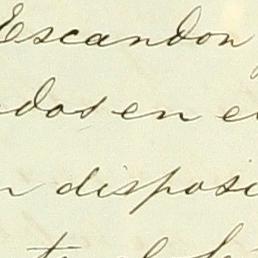 Escandon
dos en e
n disposi